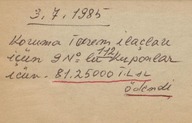 3.7.1985
Koruma Tarım ilaçları
için 9 No: lu 112 Kuponlar
için. 81.25000 T.L sı
ödendi